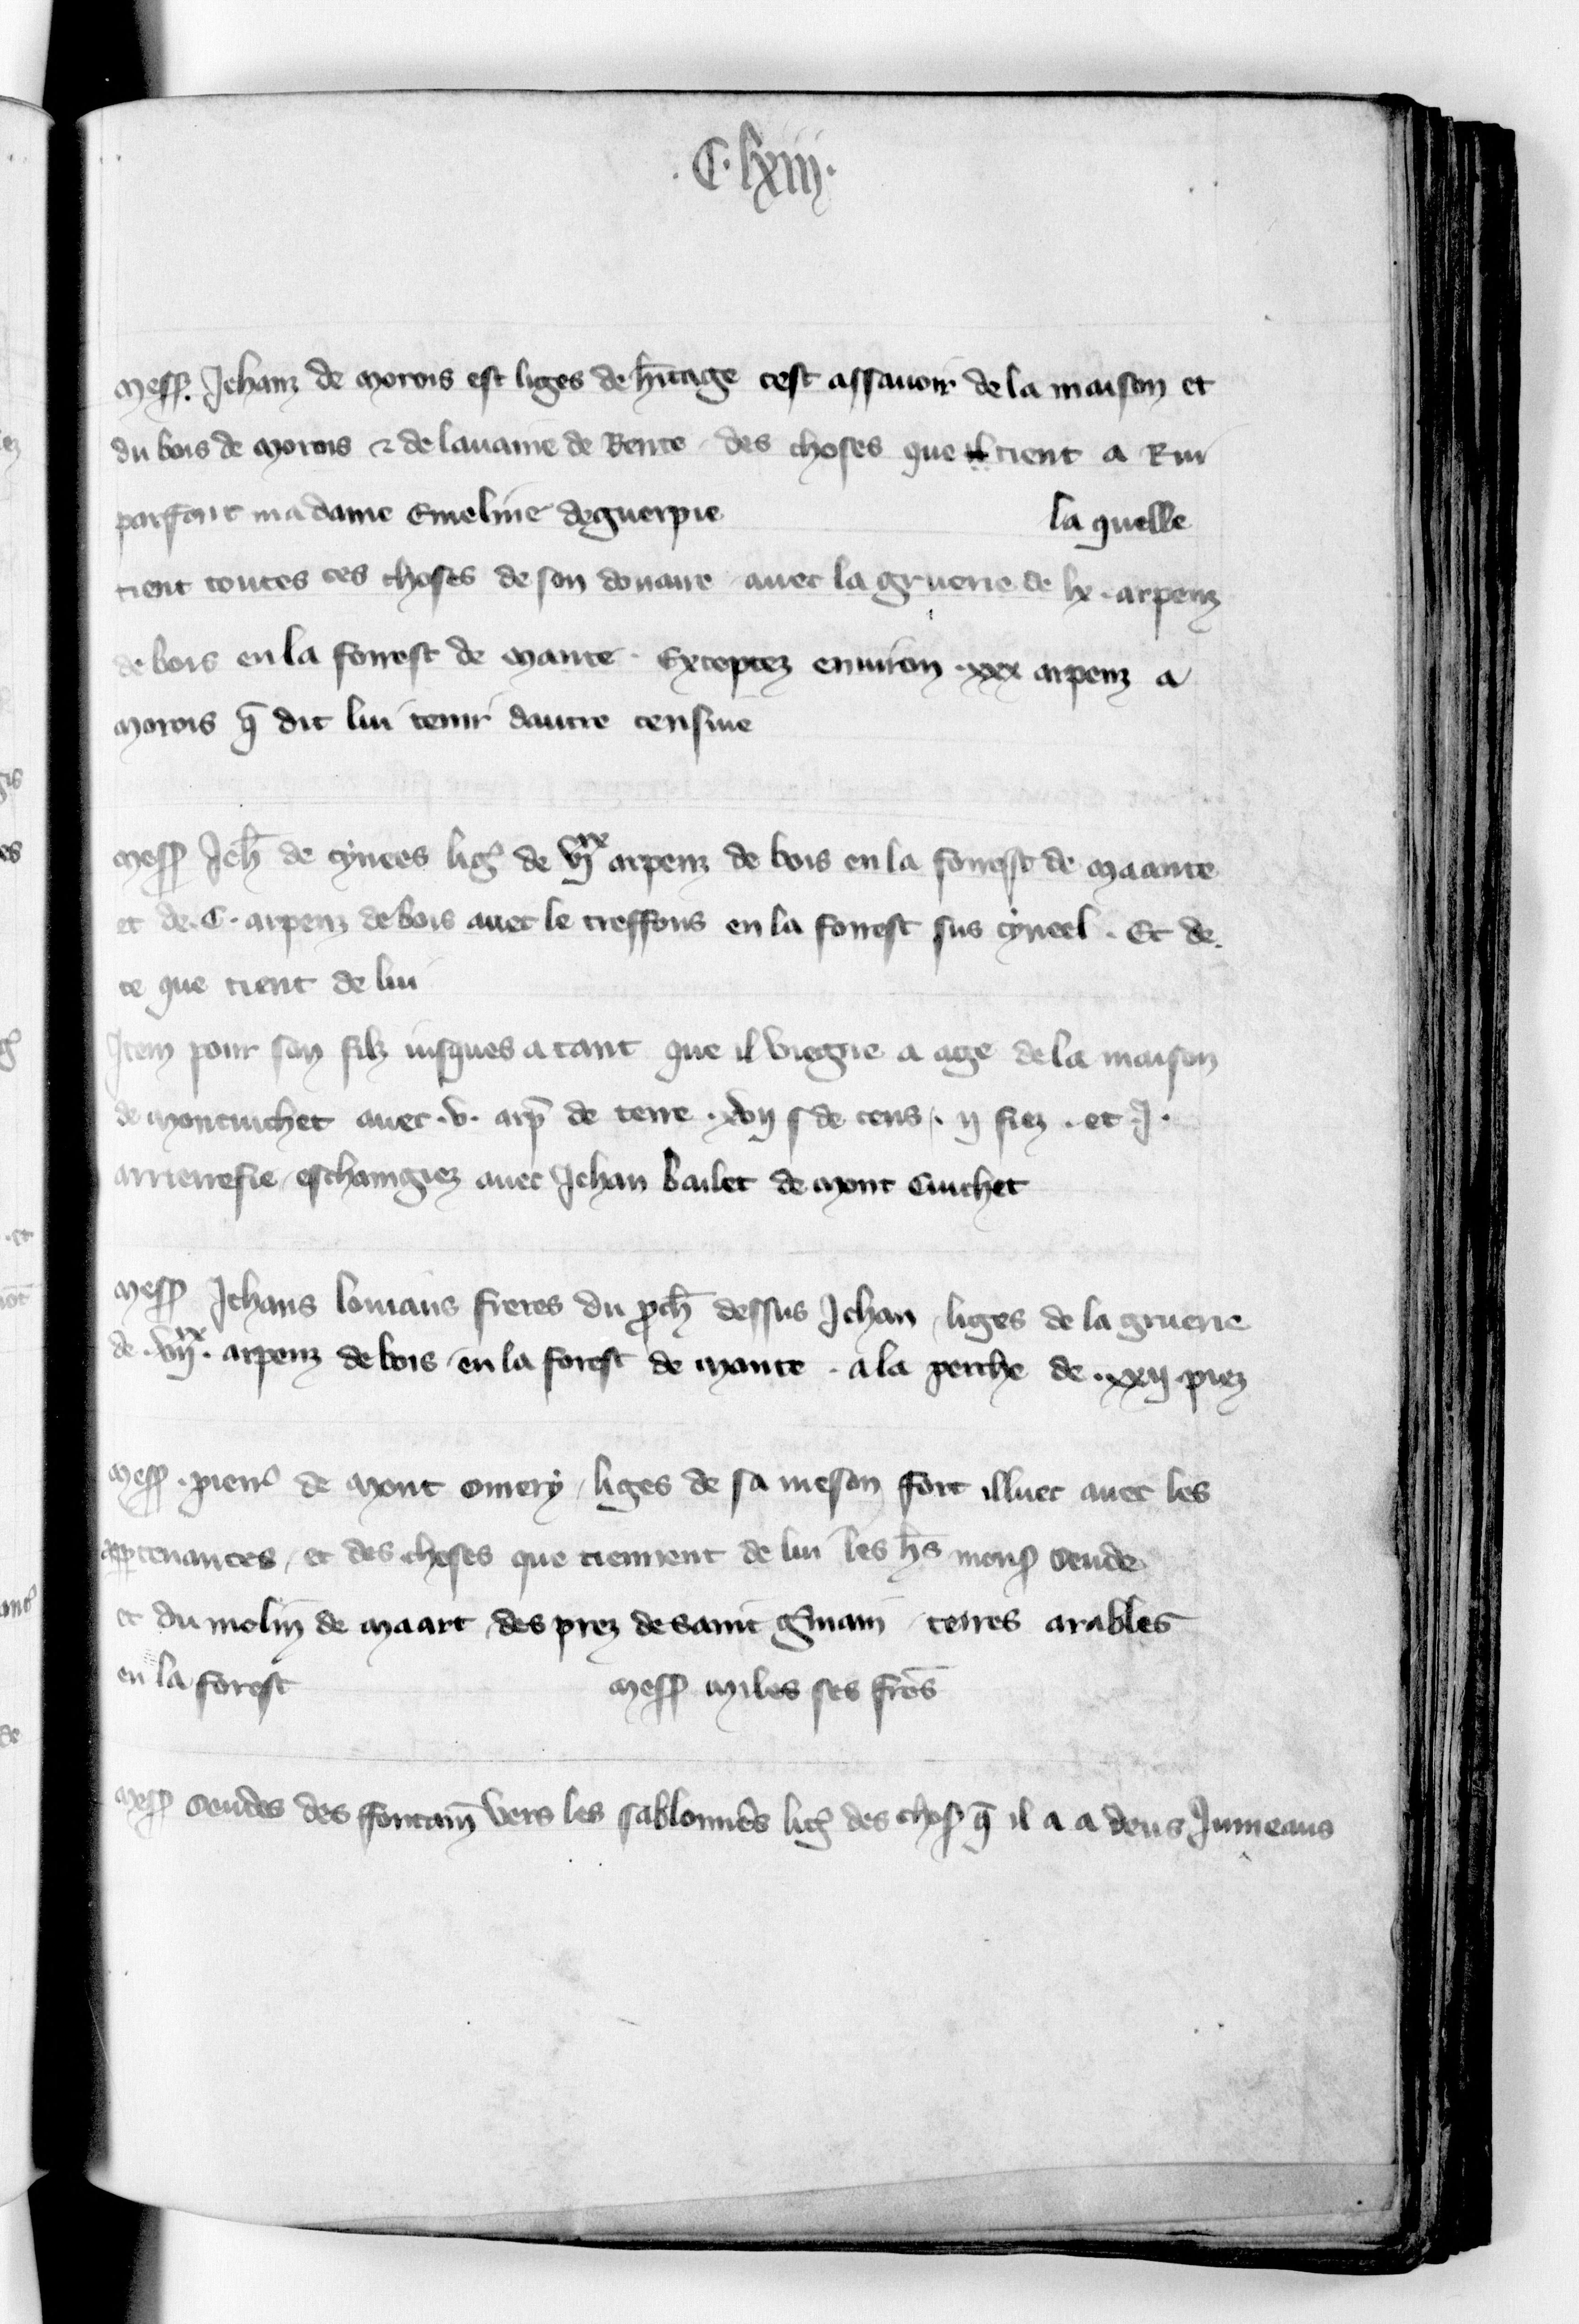 .C.lxiij.
Mess. Jehanz de Morois est liges de hĩtage cest assavoir de la maison et
du bois de Morois ⁊ de lavaine de Rente des choses que il tient a Rui
parfont ma dame Emeline deguerpie la quelle
tient toutes ces choses de son douaire avec la gruerie de lx. arpenz
de bois en la forrest de Mante. Exceptez environ .xxx arpenz a
Morois q̃ dit lui tenir dautre censive
Mess Jeh̃ de cynces lig de vjxx arpenz de bois en la forrest de Maante
et de .C. arpenz de bois avec le treffons en la forrest sus cyneel. Et de
ce que tient de lui
Item pour son filz jusques a tant que il viegne a age de la maison
de Montuichet avec .v. arp̃ de terre .xvij s de cens . ij fiez . et .j.
arrierefie eschangiez avec Jehan bailet de Mont Cuichet
Mess Jehans lomans freres du p̃ch̃ dessus Jehan liges de la gruerie
de .vijxx. arpenz de bois en la forest de Mante . a la perche de .xxij. piez
Mess. pierr de Mont omery liges de sa meson fort illuec avec les
appartenances, et des choses que tiennent de lui les hs̃ mons Oeude
et du molin de Maart des prez de saint g̃main terres arables
en la forest Mess Miles ses fres̃
Mess Oeudes des ffontain̄ vers les sablonnieres lig des chos q̃ il a a deus Jumeaus